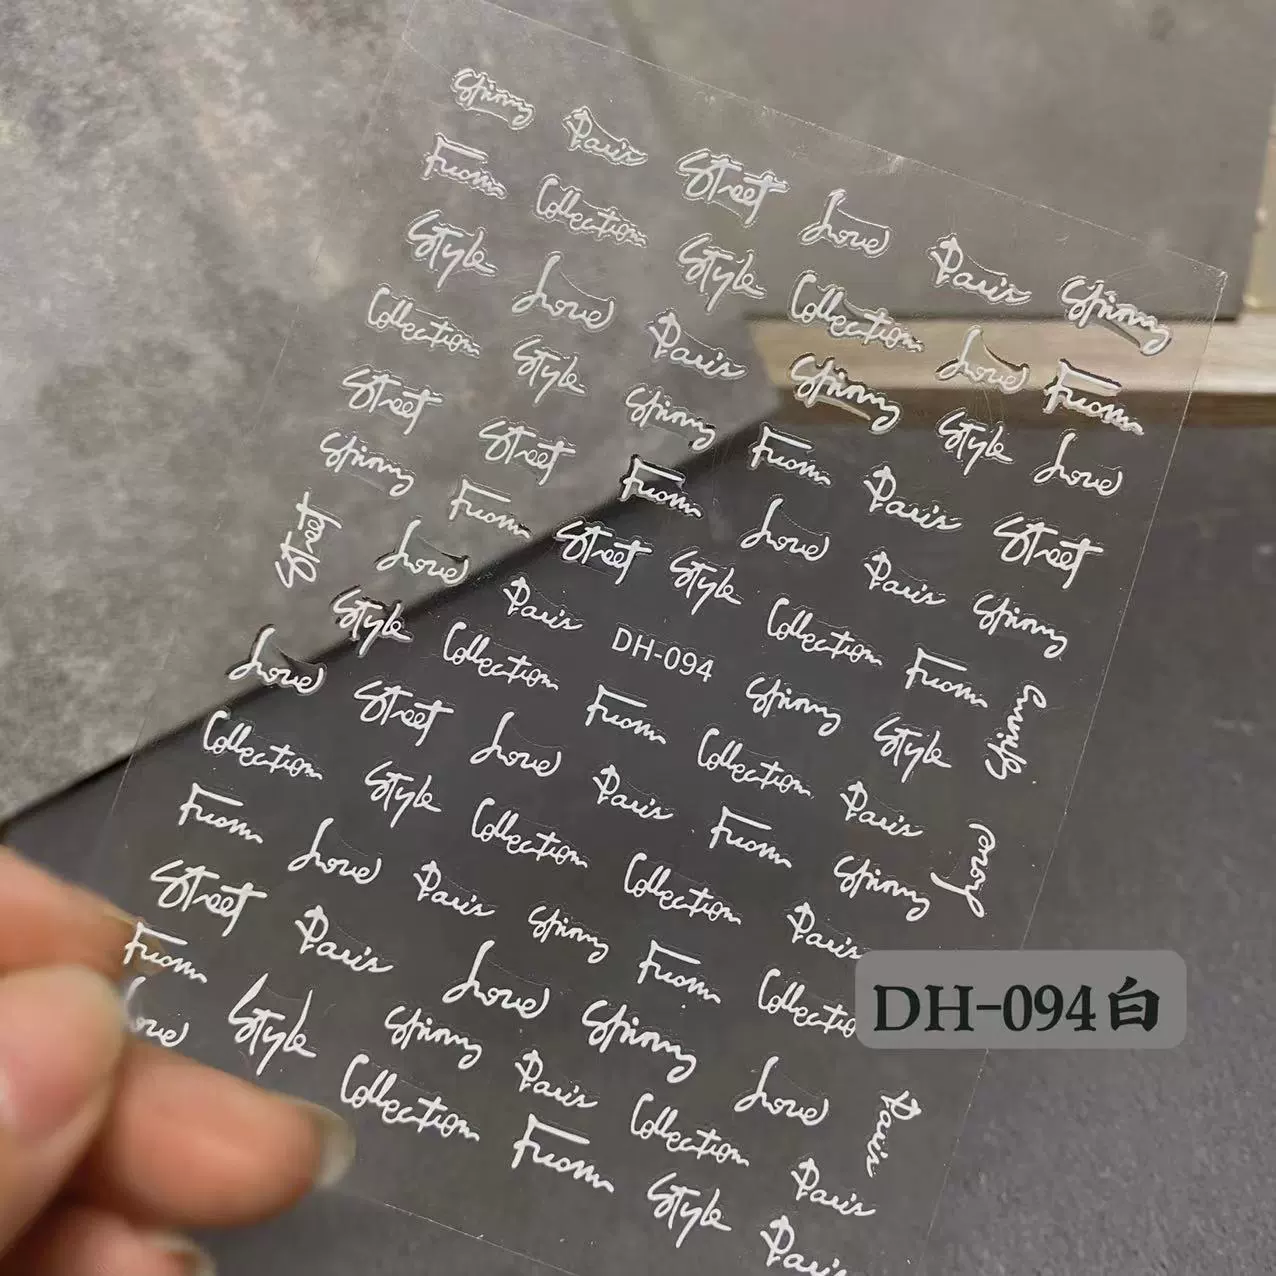 Spinny Paris Street Love Paris Spinny
From Collection Style Collection Love From
Style Love Paris Spinny Style Love
Collection Style Spinny From Paris Street
Street Street From Love Paris Spinny
Spinny From Street Style Collection From Spinny
Street Love Paris DH-094 Spinny Style
Style Collection From Collection Paris Love
Love Street Love Paris From Spinny
Collection Style Collection Collection Paris
From Love Paris Spinny From Collectio
Street Paris Love Spinny Love Paris
From Style Spinny Paris Collection Paris
Love Collection From Style Paris
DH-094白